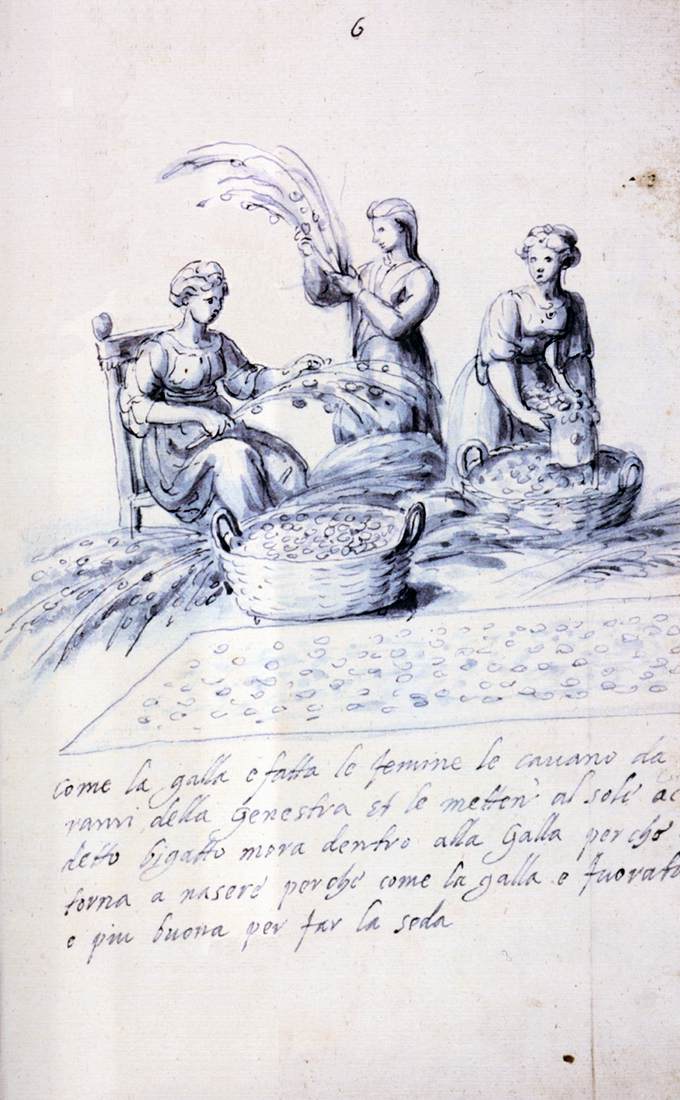 6
come la galla è fatta le femine le cavano da
rami della genestra et le metten al sole ac
detto bigatto mora dentro alla galla perche
torna a nascere perche come la galla e fuorata
e piu buona per far la seda